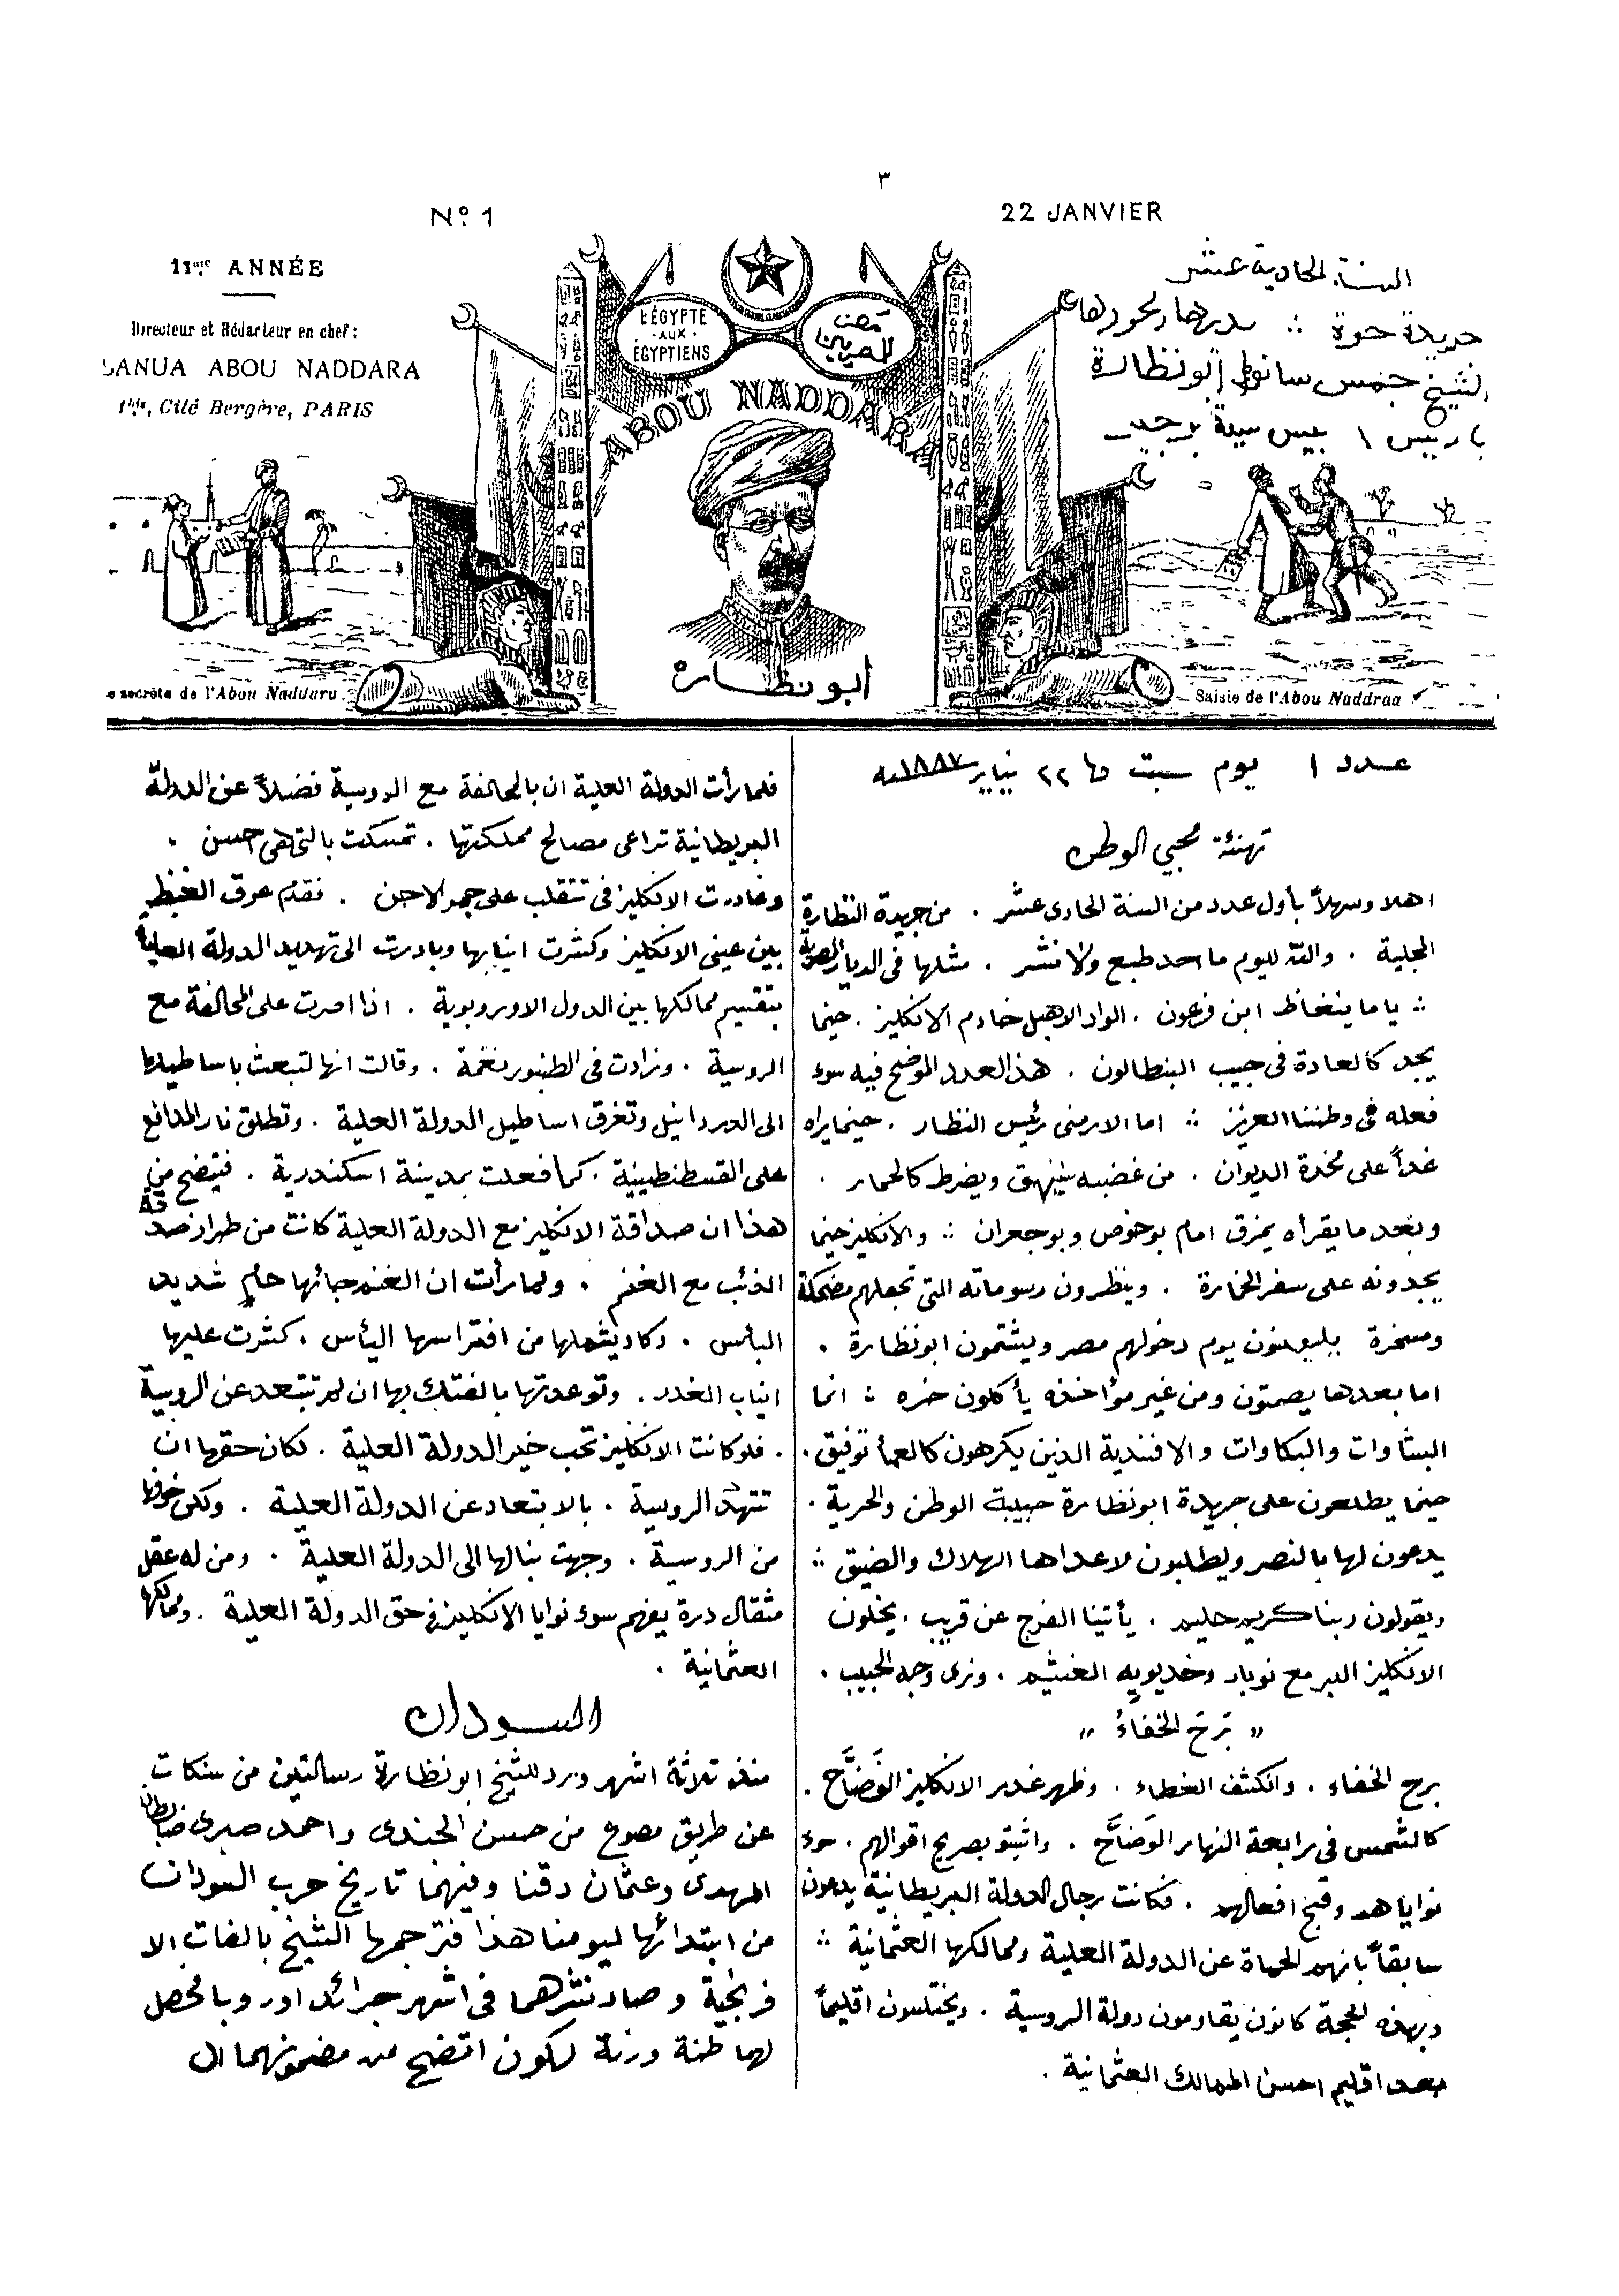 ٣
Nº. 1
22 JANVIER
11me ANNÉE
Directeur et Rédacteur en chef:
SANUA ABOU NADDARA
Cité Bergère, PARIS
السنة الحادية عشر
جريدة حرة ∴ مديرها ومحررها
الشيخ جمس سانوا ابو نظارة
باريس ١ بيس سيتة برجير
L'ÉGYPTE
AUX
ÉGYPTIENS
مصر
للمصريين
ABOU NADDARA
ابو نظارة
e secrète de l'Abou Naddara
Saisie de l'Abou Naddraa
عدد ١ يوم سبت في ٢٢ يناير سنة ١٨٨٧
تهنئة محبي الوطن
اهلا وسهلاً بأول عدد من السنة الحادى عشر . من جريدة النظارة
المجلية . والله لليوم ما احد طبع ولا نشر . مثلها فى الديار المصرية
∴ ياما ينغاظ ابن فرعون . الواد الاهبل خادم الانكليز . حينما
يجد كالعادة فى جيب البنطالون . هذا العدد الموضح فيه سوء
فعله فى وطننا العزيز ∴ اما الارمنى رئيس النظار . حينما يراه
غداً على مخدة الديوان . من غضبه ينهق ويضرط كالحمار .
وبعد ما يقرأه يمزق امام بوخوص وبوجعران ∴ والانكليز حينما
يجدونه على سفر الخمارة . وينظرون رسوماته التى تجعلهم مضحكة
ومسخرة يلعنون يوم دخولهم مصر ويشتمون ابو نظارة .
اما بعدها يصمتون ومن غير مؤاخذه يأكلون خره ∴ انما
البشاوات والبكاوات والافندية الذين يكرهون كالعما توفيق .
حينما يطلعون على جريدة ابو نظارة حبيبة الوطن والحرية .
يدعون لها بالنصر ويطلبون لاعداها الهلاك والضيق ∴
ويقولون ربنا كريم حليم . يأتينا الفرج عن قريب . يخلون
الانكليز البر مع نوبار وخديويه الغشيم . ونرى وجه الحبيب .
" بَرِحَ الخفاءُ "
برح الخفاء . وانكشف الغطاء . وظهر غدر الانكليز الفَضّاح .
كالشمس فى رابعة النهار الوَضّاح . واثبتو بصريح اقوالهم . سوء
نواياهم وقبح افعالهم . فكانت رجال الدولة البريطانية يدعون
سابقاً بانهم الحماة عن الدولة العلية وممالكها العثمانية ∴
وبهذه الحجة كانون يقاومون دولة الروسية . ويختلسون اقليماً
بعد اقليم احسن الممالك العثمانية .
فلما رأت الدولة العلية ان بالمحالفة مع الروسية فضلاً عن الدولة
البريطانية تراعى مصالح مملكتها . تمسكت بالتى هى احسن .
وغادرت الانكليز فى تتقلب على جمر الاحن . فقام عرق الغيظ
بين عينى الانكليز وكشرت انيابها وبادرت الى تهديد الدولة العلية
بتقسيم ممالكها بين الدول الاوروبوية . اذا اصرت على المحالفة مع
الروسية . وزادت فى الطنبور نغمة . وقالت انها لتبعث باساطيلها
الى الدردانيل وتغرق اساطيل الدولة العلية . وتطلق نار المدافع
على القسطنطينية . كما فعلت بمدينة اسكندرية . فيتضح من
هذا ان صداقة الانكليز مع الدولة العلية كانت من طراز صداقة
الذئب مع الغنم . ولما رأت ان الغنم جائها حامٍ شديد
البأس . وكاد يشملها من افتراسها اليأس . كشرت عليها
انياب الغدر . وتوعدتها بالفتك بها ان لم تبتعد عن الروسية
. فلو كانت الانكليز تحب خير الدولة العلية . لكان حقها ان
تتهدّد الروسية . بالابتعاد عن الدولة العلية . ولكن خوفها
من الروسية . وجهت نبالها الى الدولة العلية . ومن له عقل
مثقال درة يفهم سوء نوايا الانكليز فى حق الدولة العلية . وممالكها
العثمانية .
السودان
منذ ثلاثة اشهر ورد للشيخ ابو نظارة رسالتين من سنكات
عن طريق مصوع من حسن الجندى واحمد صبرى ضابطان
المهدى وعثمان دقنا وفيهما تاريخ حرب السودان
من ابتدائها ليومنا هذا فترجمها الشيخ بالغات الا
فرنجية وصار نشرهما فى اشهر جرائد اوروبا فحصل
لهما طنة ورنة لكون اتضح من مضمونهما ان